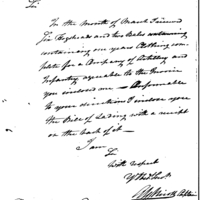 Sir
In the month of March I received
Six Hogheads and two Bales containing
containing one year Clothing com-
plete for a Company of Artillery and
Infantry agreeable to the Invoice
you inclosed me — Conformable
to your direction I inclose you
the Bill of Lading with a receipt
on the back of it —
I am
Sir
with respect